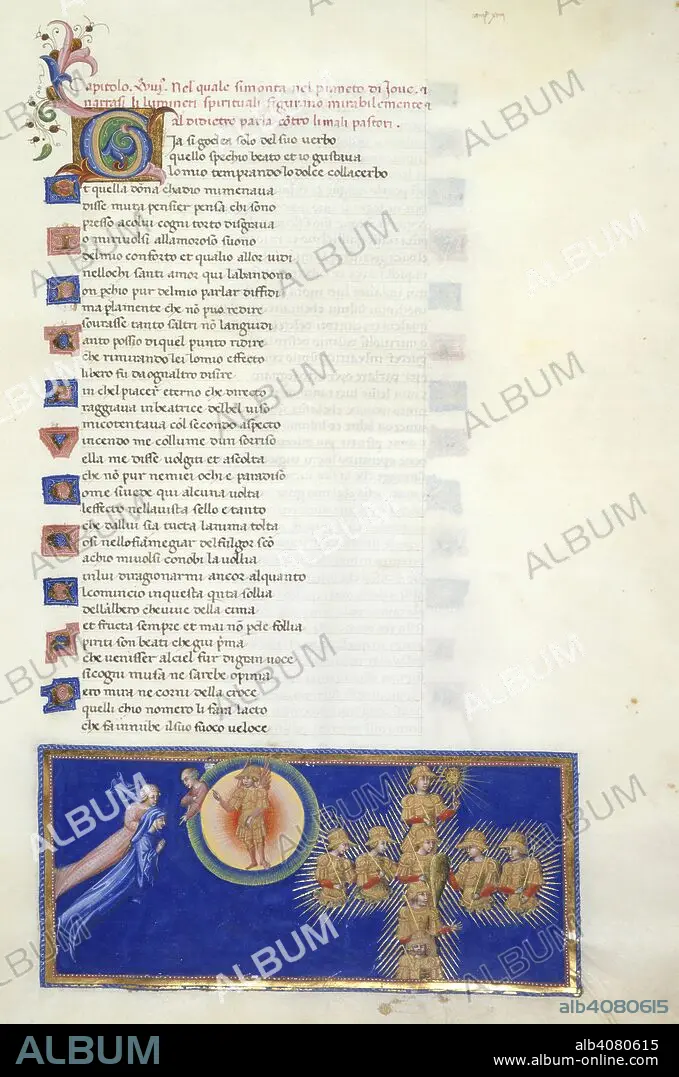 Capitolo. xviij. Nel quale si monta nel pianeto di Jove. ⁊
narrasi li lumineri spirituali figurino mirabilemente ⁊
al didietro parla cōtro li mali pastori.
Gia si godea solo del suo verbo
quello spechio beato et io gustava
lo mio temprando lo dolce collacerbo
Et quella dōna chadio mi menava
disse muta pensier pensa chi sono
presso acolui cogni torto disgrava
Io mi rivolsi allamoroso suono
delmio conforto et qualio allor vidi
nellochi santi amor qui labandono
Non pchio pur delmio parlar diffidi
ma p lamente che nō puo redire
sovrasse tanto saltri nō la guidi
Tanto possio di quel punto ridire
che rimirando lei lo mio effecto
libero fu da ognaltro disire
Fin chel piacer eterno che directo
raggiava in beatrice del bel viso
mi contentava col secondo aspecto
Vincendo me col lume dun sorriso
ella me disse volgiti et ascolta
che nō pur nemiei ochi e paradiso
Come si vede qui alcuna volta
leffecto nella vista sello e tanto
che dallui sia tucta lanima tolta
Cosi nello fiamegiar del fulgor scō
achio mi volsi conobi la voglia
in lui di ragionarmi ancor alquanto
El comincio in questa qnta soglia
dellalbero che vive della cima
et fructa sempre et mai nō pde foglia
Spiriti son beati che giu pma
che venisser al ciel fur di gran voce
si cogni musa ne sarebe opima
Pero mira ne corni della croce
quelli chio nomero li fara lacto
che fa in nube il suo fuoco veloce
ALBUM
alb4080615
ALBUM
alb4080615
www.album-online.com